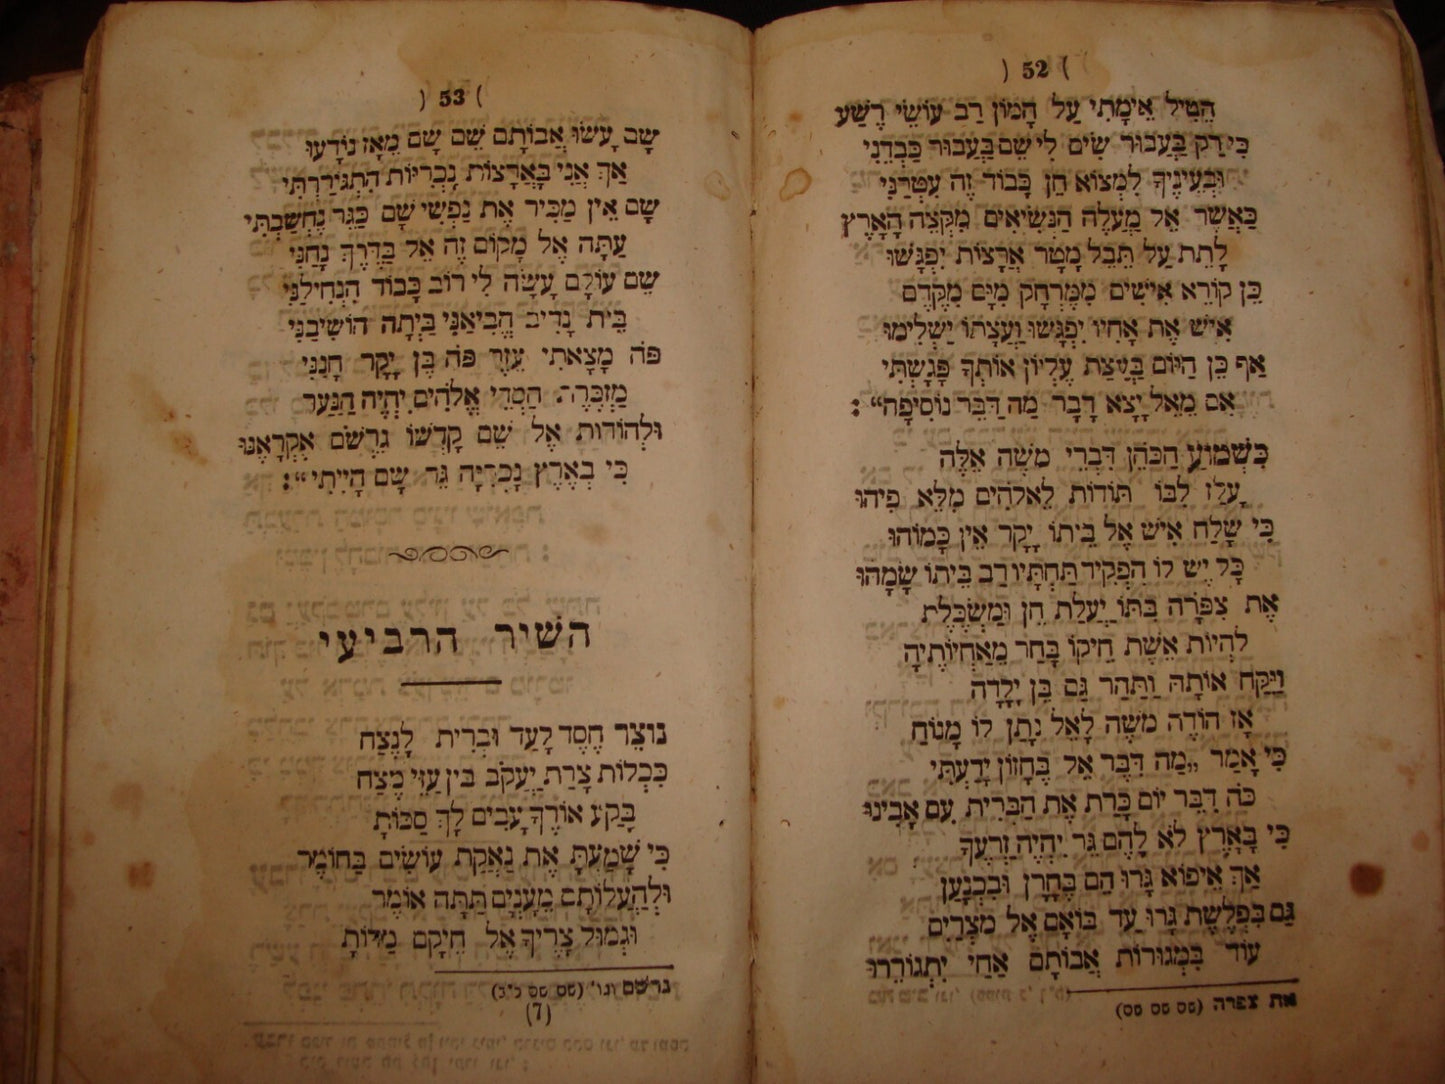 ) 52 (
הֵטִיל אֵימָתִי עַל הָמוֹן רַב עוֹשֵׂי רֶשַׁע
כִּי רַק בַּעְבוּר שִׂים לִי שֵׁם בַּעְבוּר כַּבְּדֵנִי
וּבְעֵינֶיךָ לִמְצוֹא חֵן כָּבוֹד זֶה עִטְּרַנִי
כַּאֲשֶׁר אֵל מַעֲלֶה הַנְּשִׂיאִים מִקְצֵה הָאָרֶץ
לָתֵת עַל תֵּבֵל מָטָר אֲרָצוֹת יִפְגָּשׁוּ
כֵּן קוֹרֵא אִישִׁים מִמֶּרְחָק מִיָּם מִקֶּדֶם
אִישׁ אֶת אָחִיו יִפְגָּשׁוּ וַעֲצָתוֹ יַשְׁלִימוּ
אַף כֵּן הַיּוֹם בַּעֲצַת עֶלְיוֹן אוֹתְךָ פָּגָשְׁתִּי
אִם מֵאֵל יָצָא דָבָר מַה דַּבֵּר נוֹסִיפָה“ :
כִּשְׁמוֹעַ הַכֹּהֵן דִּבְרֵי מֹשֶׁה אֵלֶּה
עָלַז לִבּוֹ תּוֹדוֹת לֵאלֹהִים מִלֵּא פִיהוּ
כִּי שָׁלַח אִישׁ אֶל בֵּיתוֹ יָקָר אֵין כָּמוֹהוּ
כָּל יֶשׁ לוֹ הִפְקִיד תַּחְתָּיו רַב בֵּיתוֹ שָׂמָהוּ
אֶת צִפֹּרָה בִתּוֹ יַעֲלַת חֵן וּמַשְׂכֶּלֶת
לִהְיוֹת אֵשֶׁת חֵיקוֹ בָּחַר מֵאַחְיוֹתֶיהָ
וַיִּקַּח אוֹתָהּ וַתַּהַר גַּם בֵּן יָלָדָה
אָז הוֹדָה מֹשֶׁה לָאֵל נָתַן לוֹ מָנוֹחַ
כִּי אָמַר „מַה דִּבֶּר אֵל בֶּחָזוֹן יָדָעְתִּי
כֹּה דִבֵּר יוֹם כָּרַת אֶת הַבְּרִית עִם אָבִינוּ
כִּי בָּאָרֶץ לֹא לָהֶם גֵּר יִהְיֶה זַרְעֶךָ
אַךְ אֵיפוֹא גָּרוּ הֵם בְּחָרָן וּבִכְנָעַן
גַּם בִּפְלֶשֶׁת גָּרוּ עַד בּוֹאָם אֶל מִצְרַיִם
עוֹד בִּמְגוּרוֹת אֲבוֹתָם אַחַי יִתְגּוֹרֵרוּ
את צפרה (שם שם שם)
) 53 (
שָׁם עָשׂוּ אֲבוֹתָם שֵׁם שָׁם מֵאָז נוֹדָעוּ
אַךְ אֲנִי בָּאֲרָצוֹת נָכְרִיּוֹת הִתְגּוֹרַרְתִּי
שָׁם אֵין מַכִּיר אֶת נַפְשִׁי שָׁם כַּגֵּר נֶחְשַׁבְתִּי
עַתָּה אֶל מָקוֹם זֶה אֵל בַּדֶּרֶךְ נָחַנִי
שֵׁם עוֹלָם עָשָׂה לִי רוֹב כָּבוֹד הִנְחִילַנִי
בֵּית נָדִיב הֱבִיאַנִי בַּיְתָה הוֹשִׁיבַנִי
פֹּה מָצָאתִי עֵזֶר פֹּה בֵּן יָקָר חָנַנִי
מַזְכֶּרֶת חַסְדֵי אֱלֹהִים יִהְיֶה הַנַּעַר
וּלְהוֹדוֹת אֶל שֵׁם קָדְשׁוֹ גֵּרְשֹׁם אֶקְרָאֶנּוּ
כִּי בְאֶרֶץ נָכְרִיָּה גֵּר שָׁם הָיִיתִי“ :
השיר הרביעי
נוֹצֵר חֶסֶד לָעַד וּבְרִית לָנֶצַח
כִּכְלוֹת צָרַת יַעֲקֹב בֵּין עַזֵּי מֶצַח
בָּקַע אוֹרְךָ עָבִים לָךְ סַכּוֹתָ
כִּי שָׁמַעְתָּ אֶת נַאֲקַת עוֹשִׂים בַּחוֹמֶר
וּלְהַעֲלוֹתָם מֵעֳנְיָם תַּתָּה אוֹמֶר
וּגְמוּל צָרֶיךָ אֶל חֵיקָם מַדּוֹתָ
גרשם וגו' (שם שם כ"ב)
(7)